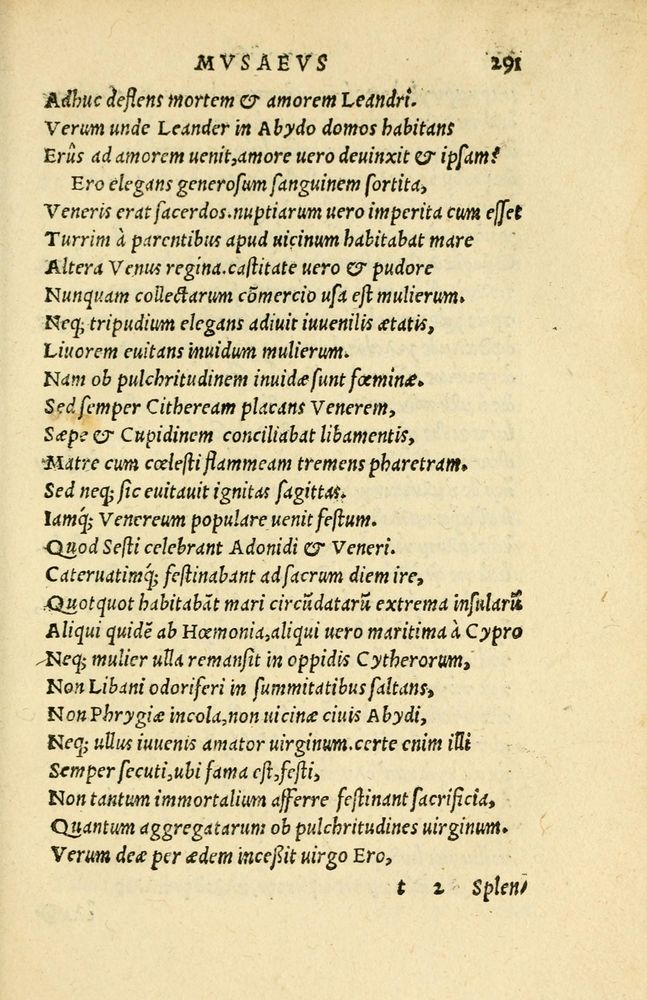 MVSAEVS 291
Adhuc deflens mortem & amorem Leandri.
Verum unde Leander in Abydo domos habitans
Erûs ad amorem uenit,amore uero deuinxit & ipsam?
Ero elegans generosum sanguinem sortita,
Veneris erat sacerdos.nuptiarum uero imperita cum esset
Turrim à parentibus apud uicinum habitabat mare
Altera Venus regina.castitate uero & pudore
Nunquam collectarum cõmercio usa est mulierum.
Neq; tripudium elegans adiuit iuuenilis ætatis,
Liuorem euitans inuidum mulierum.
Nam ob pulchritudinem inuidæ sunt fœminæ.
Sed semper Citheream placans Venerem,
Sæpe & Cupidinem conciliabat libamentis,
Matre cum cœlesti flammeam tremens pharetram.
Sed neq; sic euitauit ignitas sagittas.
Iamq́; Venereum populare uenit festum.
Quod Sesti celebrant Adonidi & Veneri.
Cateruatimq́; festinabant ad sacrum diem ire,
Quotquot habitabãt mari circũdatarũ extrema insularũ
Aliqui quidẽ ab Hœmonia,aliqui uero maritima à Cypro
Neq; mulier ulla remansit in oppidis Cytherorum,
Non Libani odoriferi in summitatibus saltans,
Non Phrygiæ incola,non uicinæ ciuis Abydi,
Neq; ullus iuuenis amator uirginum.certe enim illi
Semper secuti,ubi fama est,festi,
Non tantum immortalium afferre festinant sacrificia,
Quantum aggregatarum ob pulchritudines uirginum.
Verum deæ per ædem inceßit uirgo Ero,
t 2 Splen⸗